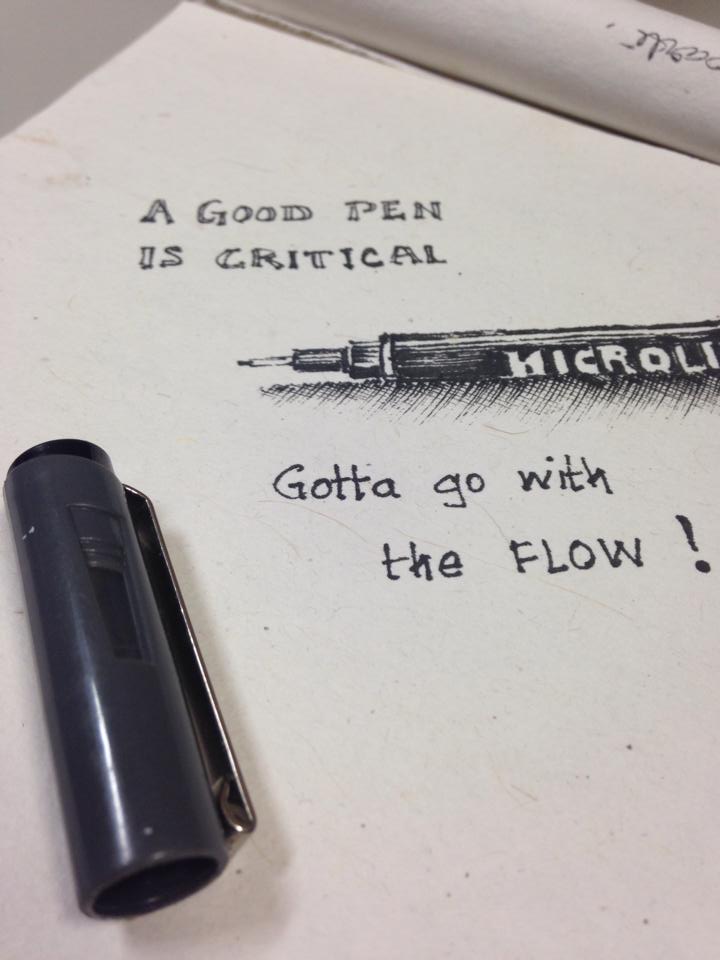 A GOOD PEN
IS CRITICAL
MICROLI
Gotta go with
the FLOW !